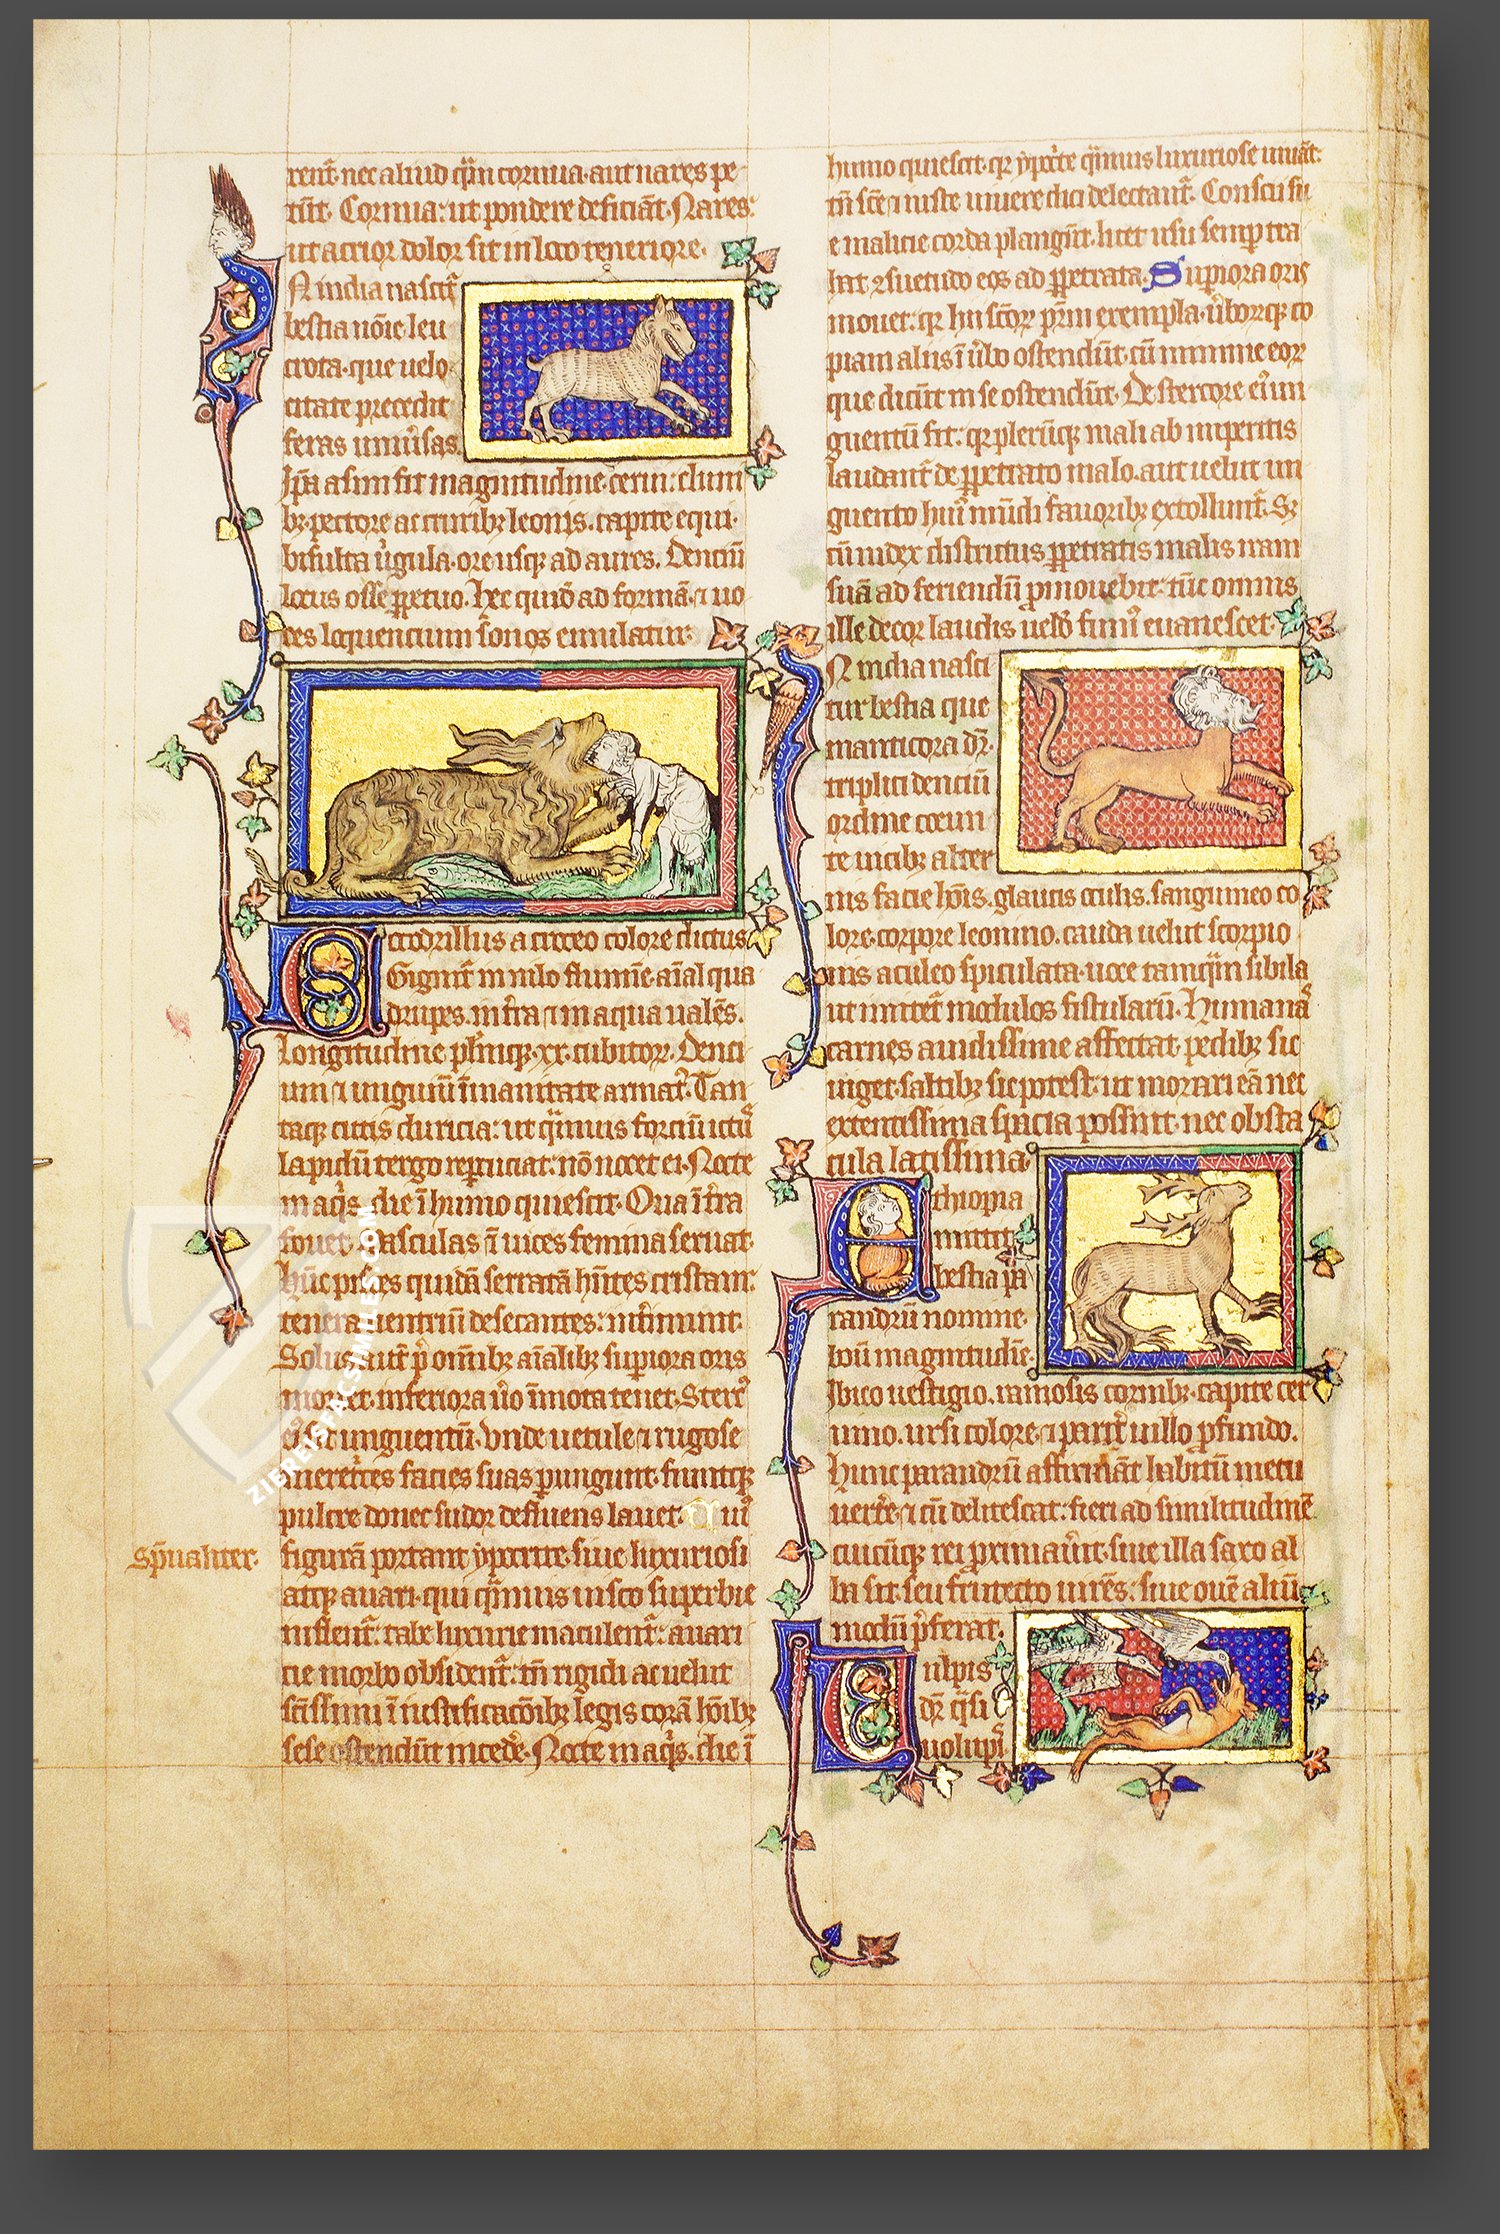 rent᷑ nec aliud qͣm cornua· aut nares pe
tūt· Cornua: ut pondere deficiāt· Nares:
ut acrior dolor sit in loco teneriore·
N india nascit᷑
bestia nōīe leu
crota· que uelo
citate precedit
feras uniu͛sas·
Ip̄a asini fit magnitudine· cerui: cluni
bꝫ· pectore ac cruribꝫ leonis. capite equi·
bifulta u͛gula· ore usqꝫ ad aures. Denciū
locus osse ꝑpetuo. Hec quid̄ ad formā· ⁊ uo
ces loquencium sonos emulatur·
Cocodrillus a croceo colore dictus
Gignit᷑ in nilo flumīe· aīal qua
drupes. in t͛ra ⁊ in aqua ualēs.
Longitudine pl͛inqꝫ· xx· cubitoꝝ. Denci
um ⁊ unguiū īmanitate armat᷑. Tan
taqꝫ cutis duricia: ut qͣmuis forciū ictū
lapidū tergo repciat: nō nocet ei· Nocte
in aqͥs· die ī humo quiescit· Oua ī t͛ra
fouet· Masculus ⁊ uices femina seruat·
Hūc pisces quidā serratā hn̄tes cristam:
tenera uentriū desecantes: int͛imunt·
Solus aut̄ p͛ om̄ibꝫ aīalibꝫ supiora oris
mouet· inferiora u͛o īmota tenet· Sterc᷑
ei᷑ fit unguentū· Vnde uetule ⁊ rugose
meret͛ces facies suas pungunt· fiuntqꝫ
pulcre donec sudor defluens lauet· Cui᷑
Sp̄ualiter· figurā portant yp̄ocrite· siue luxuriosi
atqꝫ auari· qui qͣmuis uisco superbie
inflent᷑: tabe luxurie maculent᷑: auari
cie morbo obsident᷑: tn̄ rigidi ac uelut
sc̄issimi ī iustificacōībꝫ legis corā hoībꝫ
sese ostendūt incede͛· Nocte in aqͥs· die ī
humo quiescit· qꝛ yp̄oc͛te qͣmuis luxuriose uiuāt:
tn̄ sc̄e ⁊ iuste uiuere dici delectant᷑. Conscii su
e malicie corda plangūt· licet usu semꝑ tra
hat ꝯsuetudo eos ad ꝑpetrata· Supiora oris
mouet: qꝛ hii sc̄oꝝ pr̄m exempla u͛borūqꝫ co
piam aliis ī u͛bo ostendūt· cū minime eoꝝ
que dicūt in se ostendūt· De stercore ei᷑ un
guentū fit: qꝛ plerūqꝫ mali ab imperitis
laudant᷑ de ꝑpetrato malo· aut uelut un
guento hui᷑ mūdi fauoribꝫ extollunt᷑. Sꝫ
cū iudex districtus ꝑpetratis malis iram
suā ad feriendū ꝓmouebit: tūc omnis
ille decor laudis uelud fumꝰ euanescet·
N india nasci
tur bestia que
manticora dr̄·
triplici denciū
ordine coeun
te uicibꝫ alter
nis facie hoīs. glaucis oculis. sanguineo co
lore· corpore leonino. cauda uelut scorpio
nis aculeo spiculata· uoce tamqͣm sibila
ut imitet᷑ modulos fistularū· Humanaˢ
carnes auidissime affectat· pedibꝫ sic
uiget· saltibꝫ sic potest: ut morari eā nec
extentissima spacia possint· nec obsta
cula latissima·
Ethiopia
mittit
bestiā pa
randrū nomine·
boū magnitudīe·
Ibico uestigio. ramosis cornibꝫ· capite cer
uino. ursi colore· ⁊ parit͛ uillo ꝓfundo.
Hunc parandrū affirmāt habitū metu
uert͛e· ⁊ cū delitescat: fieri ad similitudinē
cuiūcqꝫ rei ꝓximau͛it· siue illa saxo al
ba sit· seu frutecto uirēs: siue quē aliū
modū p͛ferat·
Vulpis
dr̄ qͣsi
uolupi᷑